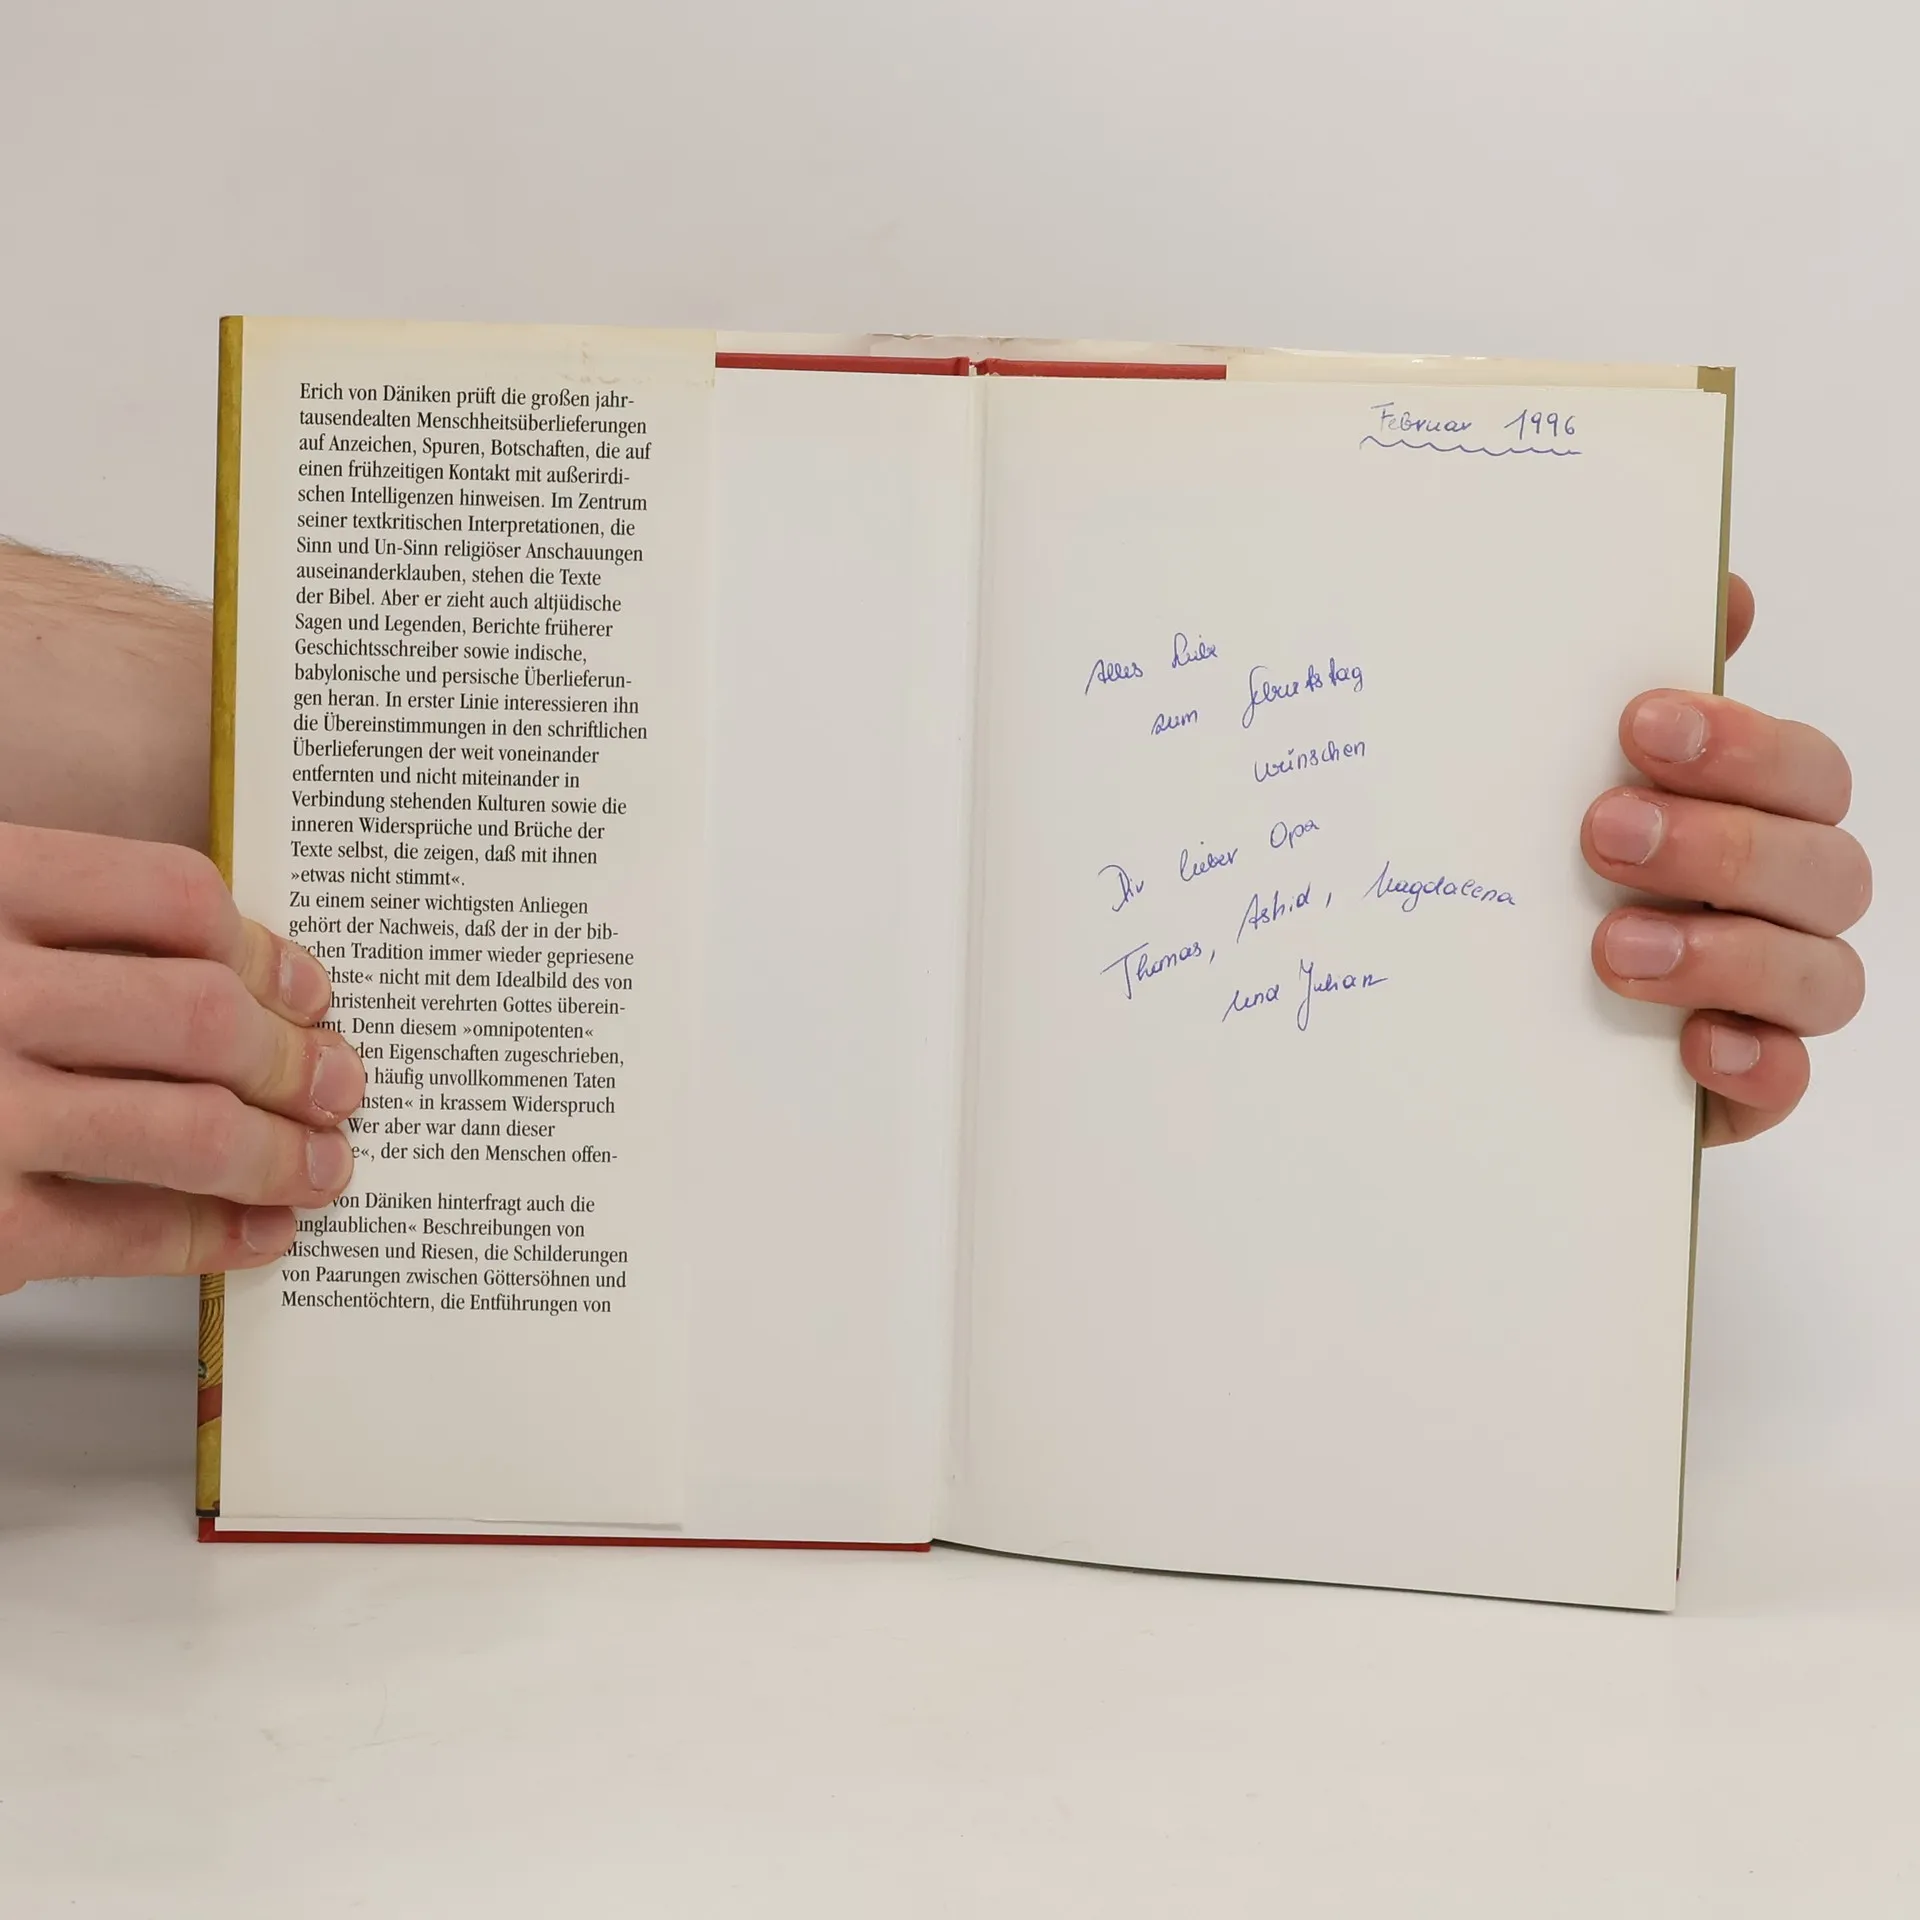 Erich von Däniken prüft die großen jahr-
tausendealten Menschheitsüberlieferungen
auf Anzeichen, Spuren, Botschaften, die auf
einen frühzeitigen Kontakt mit außerirdi-
schen Intelligenzen hinweisen. Im Zentrum
seiner textkritischen Interpretationen, die
Sinn und Un-Sinn religiöser Anschauungen
auseinanderklauben, stehen die Texte
der Bibel. Aber er zieht auch altjüdische
Sagen und Legenden, Berichte früherer
Geschichtsschreiber sowie indische,
babylonische und persische Überlieferun-
gen heran. In erster Linie interessieren ihn
die Übereinstimmungen in den schriftlichen
Überlieferungen der weit voneinander
entfernten und nicht miteinander in
Verbindung stehenden Kulturen sowie die
inneren Widersprüche und Brüche der
Texte selbst, die zeigen, daß mit ihnen
»etwas nicht stimmt«.
Zu einem seiner wichtigsten Anliegen
gehört der Nachweis, daß der in der bib-
schen Tradition immer wieder gepriesene
chste« nicht mit dem Idealbild des von
hristenheit verehrten Gottes überein-
mt. Denn diesem »omnipotenten«
den Eigenschaften zugeschrieben,
häufig unvollkommenen Taten
hsten« in krassem Widerspruch
Wer aber war dann dieser
e«, der sich den Menschen offen-
von Däniken hinterfragt auch die
unglaublichen« Beschreibungen von
Mischwesen und Riesen, die Schilderungen
von Paarungen zwischen Göttersöhnen und
Menschentöchtern, die Entführungen von
Februar 1996
Alles Liebe
zum Geburtstag
wünschen
Dir lieber Opa
Thomas, Astrid, Magdalena
und Julian